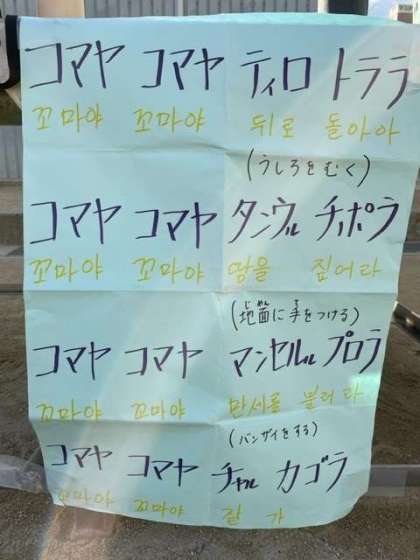 コマヤ コマヤ ティロ トララ
꼬마야 꼬마야 뒤로 돌아아
(うしろをむく)
コマヤ コマヤ タンウル チポラ
꼬마야 꼬마야 땅을 짚어라
(地面に手をつける)
コマヤ コマヤ マンセルル プロラ
꼬마야 꼬마야 만세를 불러라
(バンザイをする)
コマヤ コマヤ チャル カゴラ
꼬마야 꼬마야 잘 가